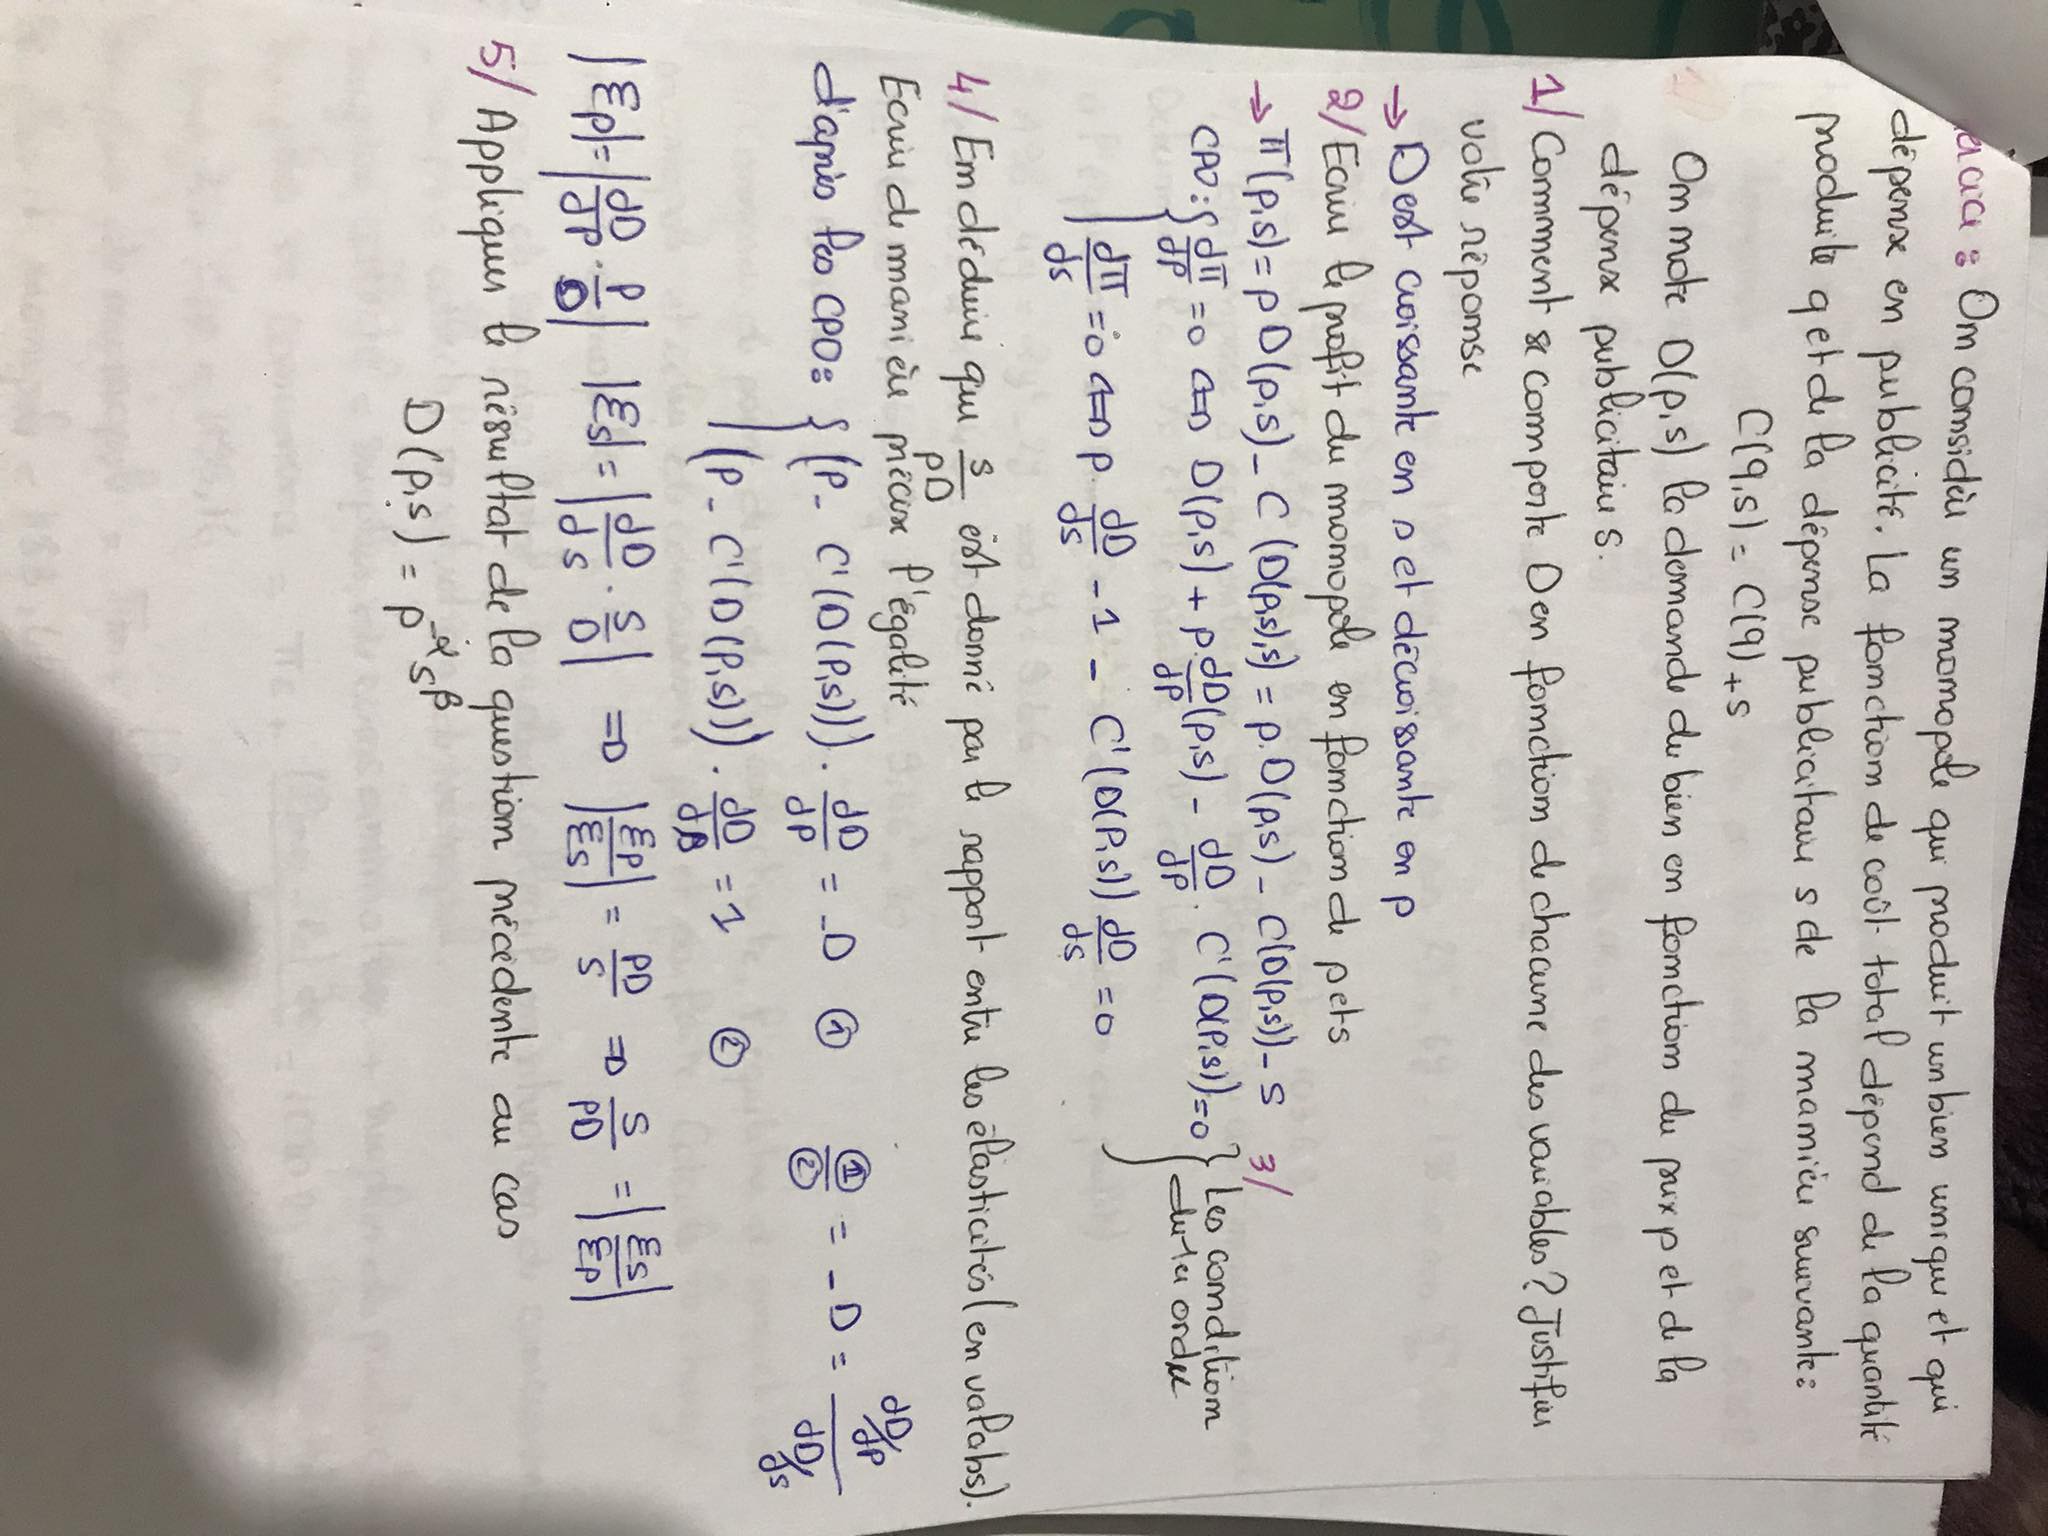 On considère un monopole qui produit un bien unique et qui
dépense en publicité. La fonction de coût total dépend de la quantité
produite q et de la dépense publicitaire s de la manière suivante :
C(q,s) = C(q) + s
On note D(p,s) la demande du bien en fonction du prix p et de la
dépense publicitaire s.
1/ Comment se comporte D en fonction de chacune des variables ? Justifier
votre réponse
→ D est croissante en s et décroissante en p
2/ Ecrire le profit du monopole en fonction de p et s
→ π(p,s) = p D(p,s) - C (D(p,s),s) = p. D(p,s) - C(D(p,s)) - s 3/
CPO : { dπ/dp = 0 <=> D(p,s) + p.dD/dp (p,s) - dD/dp . C'(D(p,s)) = 0 } Les condition du 1er ordre
dπ/ds = 0 <=> p. dD/ds - 1 - C'(D(p,s)) dD/ds = 0
4/ En déduire que s/pD est donné par le rapport entre les élasticités (en val abs).
Ecrire de manière précise l'égalité
d'après les CPO : { (P - C'(D(P,s))) . dD/dP = -D ① ①/② = -D = (dD/dp)/(dD/ds)
(P - C'(D(P,s))) . dD/ds = 1 ②
|Ep| = |dD/dP . P/D| |Es| = |dD/ds . S/D| => |Ep/Es| = PD/S => S/PD = |Es/Ep|
5/ Appliquer le résultat de la question précédente au cas
D(p,s) = p^-α s^β